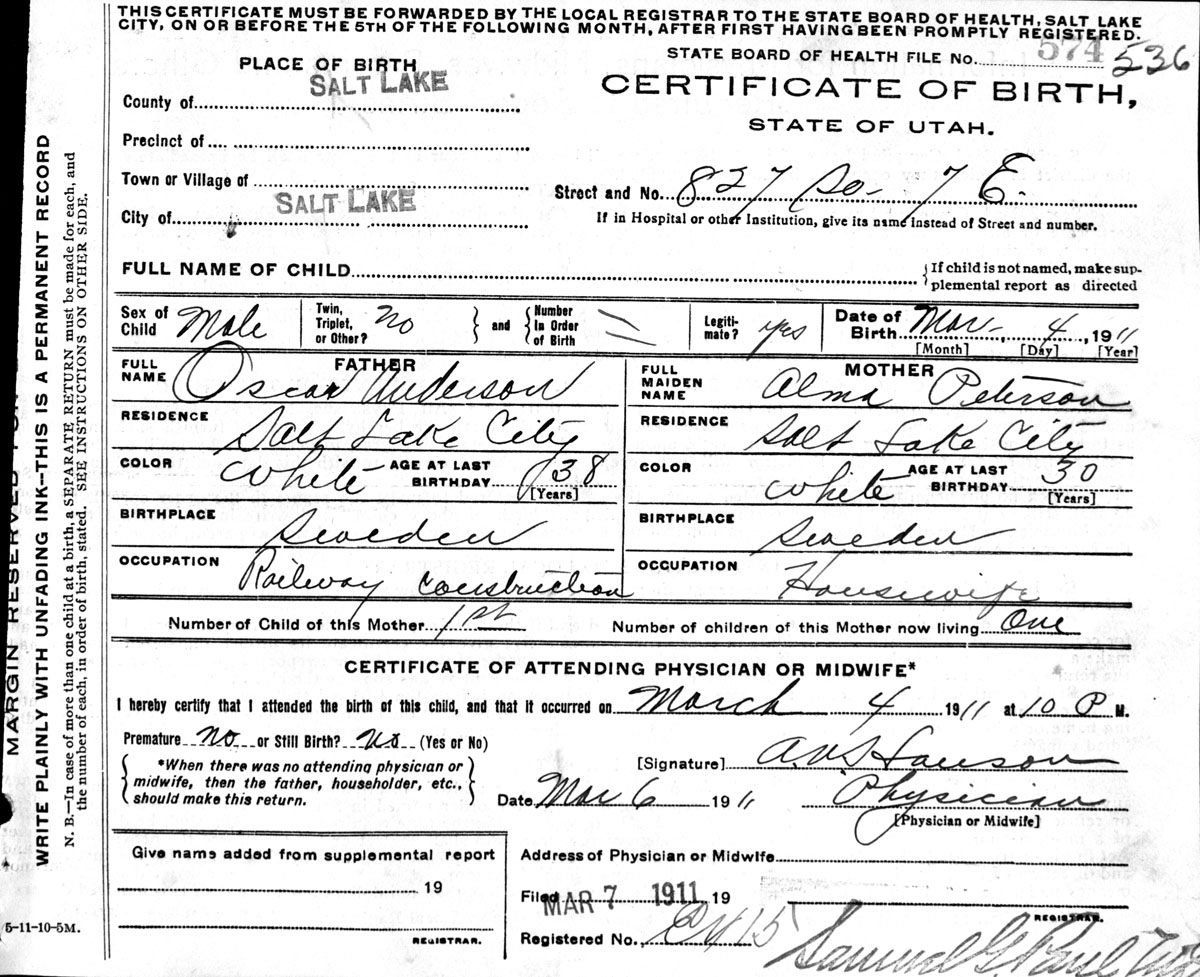 THIS CERTIFICATE MUST BE FORWARDED BY THE LOCAL REGISTRAR TO THE STATE BOARD OF HEALTH, SALT LAKE
CITY, ON OR BEFORE THE 5TH OF THE FOLLOWING MONTH, AFTER FIRST HAVING BEEN PROMPTLY REGISTERED.
STATE BOARD OF HEALTH FILE No. 574 536
PLACE OF BIRTH
CERTIFICATE OF BIRTH,
STATE OF UTAH.
County of SALT LAKE
Precinct of
Town or Village of
City of SALT LAKE
Street and No. 827 So- 7 E.
If in Hospital or other Institution, give its name instead of Street and number.
FULL NAME OF CHILD
{If child is not named, make sup-
plemental report as directed
Sex of Child Male
Twin, Triplet, or Other? No } and { Number In Order of Birth
Legiti-mate? yes
Date of Birth Mar- 4, 1911
[Month] [Day] [Year]
FATHER
FULL NAME Oscar Anderson
RESIDENCE Salt Lake City
COLOR White AGE AT LAST BIRTHDAY 38 [Years]
BIRTHPLACE Sweden
OCCUPATION Railway construction
MOTHER
FULL MAIDEN NAME Alma Peterson
RESIDENCE Salt Lake City
COLOR White AGE AT LAST BIRTHDAY 30 [Years]
BIRTHPLACE Sweden
OCCUPATION Housewife
Number of Child of this Mother 1st Number of children of this Mother now living One
CERTIFICATE OF ATTENDING PHYSICIAN OR MIDWIFE*
I hereby certify that I attended the birth of this child, and that it occurred on March 4 1911 at 10 P M.
Premature No or Still Birth? No (Yes or No)
{*When there was no attending physician or
midwife, then the father, householder, etc.,
should make this return.}
[Signature]
Date Mar 6 1911 Physician
[Physician or Midwife]
Give name added from supplemental report
19
REGISTRAR.
Address of Physician or Midwife
Filed MAR 7 1911, 19
REGISTRAR.
Registered No.
Samuel G. Paul
MARGIN RESERVED FOR
WRITE PLAINLY WITH UNFADING INK—THIS IS A PERMANENT RECORD
N. B.—In case of more than one child at a birth, a SEPARATE RETURN must be made for each, and
the number of each, in order of birth, stated. SEE INSTRUCTIONS ON OTHER SIDE.
5-11-10-5M.